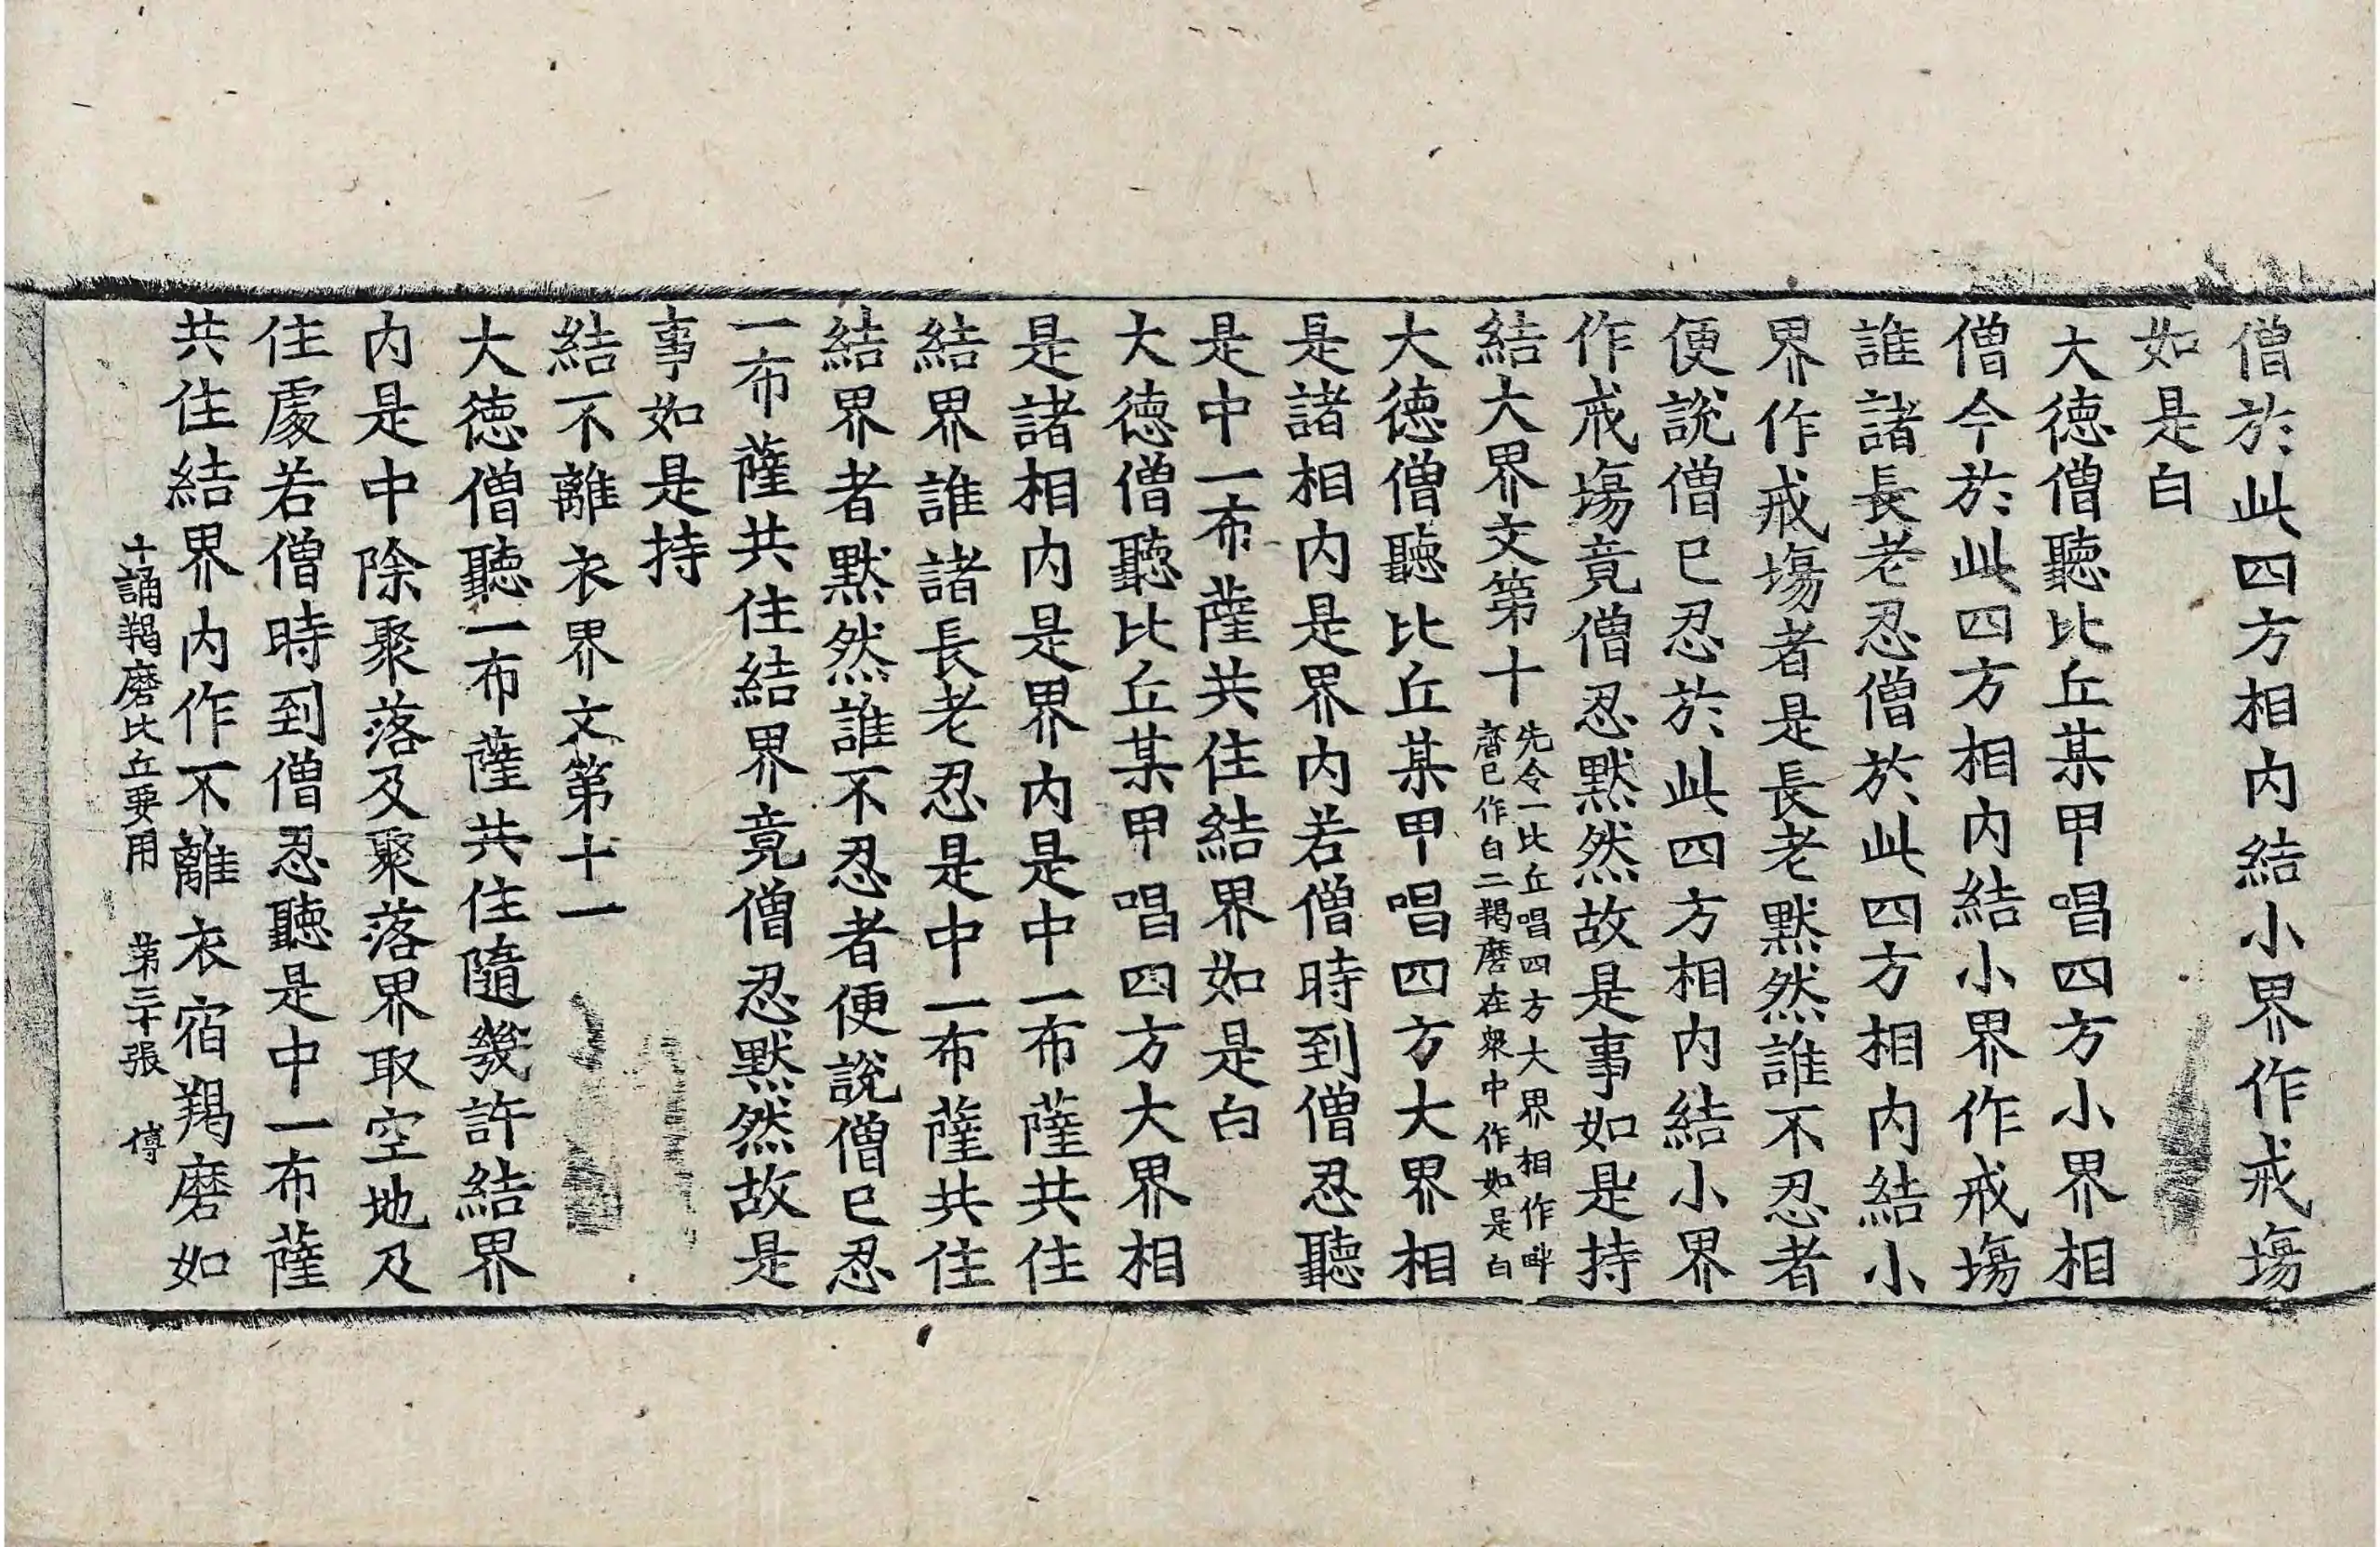 僧於此四方相内結小界作戒塲
如是白
大德僧聽比丘某甲唱四方小界相
僧今於此四方相内結小界作戒塲
誰諸長老忍僧於此四方相内結小
界作戒塲者是長老默然誰不忍者
便說僧已忍於此四方相内結小界
作戒塲竟僧忍默然故是事如是持
結大界文第十
先令一比丘唱四方大界相作畔
齊已作白二羯磨在衆中作如是白
大德僧聽比丘某甲唱四方大界相
是諸相内是界内若僧時到僧忍聽
是中一布薩共住結界如是白
大德僧聽比丘某甲唱四方大界相
是諸相内是界内是中一布薩共住
結界誰諸長老忍是中一布薩共住
結界者默然誰不忍者便說僧已忍
一布薩共住結界竟僧忍默然故是
事如是持
結不離衣界文第十一
大德僧聽一布薩共住隨幾許結界
内是中除聚落及聚落界取空地及
住處若僧時到僧忍聽是中一布薩
共住結界内作不離衣宿羯磨如
十誦羯磨比丘要用 第三十張 傅